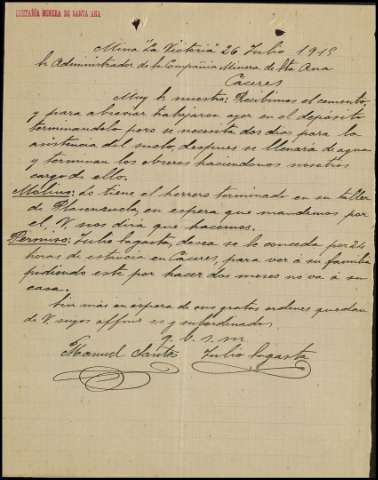 COMPAÑIA MINERA DE SANTA ANA
Mina "La Victoria" 26 Julio 1915
Administrador de la Compañia Minera de Sta Ana
Caceres
Muy Sr nuestro: Recibimos el cemento,
y para abreviar trabajaron ayer en el depósito
terminandolo pero se necesita dos dias para la
asistencia del suelo, despues se llenaria de agua
y terminan los obreros haciendonos nosotros
cargo de ello.
Molino: Lo tiene el herrero terminado en su taller
de Plasenzuela, en espera que mandemos por
el. V. nos dira que hacemos.
Permiso: Julio Sagasta, desea se le conceda por 24
horas de estancia en Caceres, para ver á su familia
pudiendo este por hacer dos meses no va á su
casa.
Sin mas en espera de sus gratas ordenes quedan
de V. suyos affmos ss y subordinados
q. b. s. m.
Manuel Santos Julio Sagasta